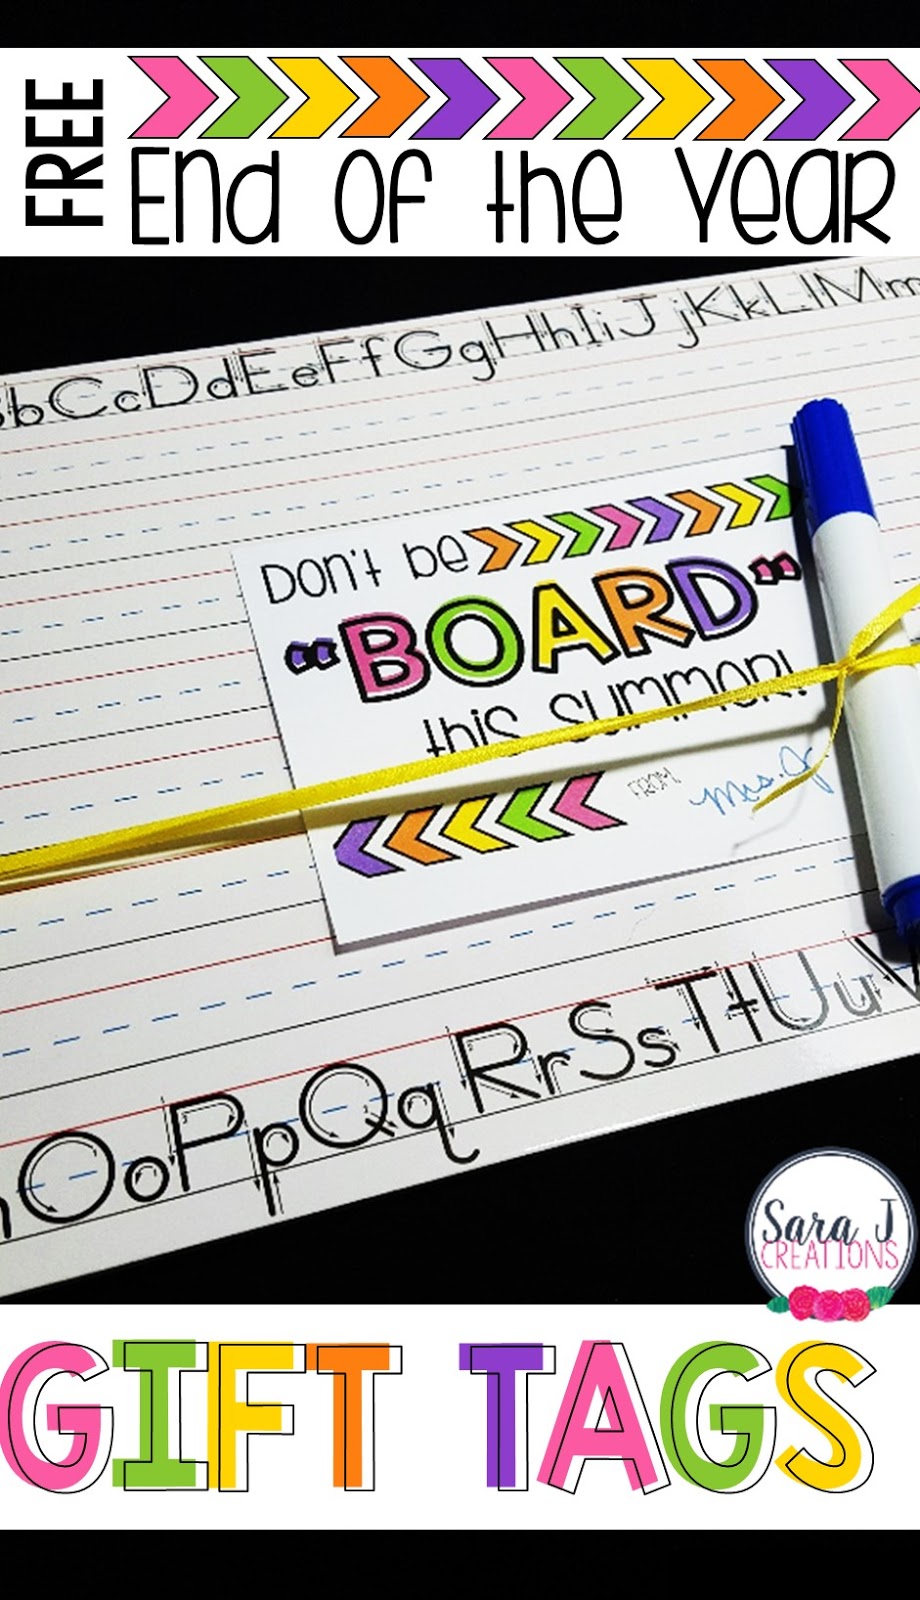 FREE
End of the Year
bCcDdEeFfGgHhIiJjKkLlMm
Don't be
"BOARD"
this summer!
FROM: Mrs. J
OoPpQqRrSsTtUuV
Sara J
CREATIONS
GIFT TAGS